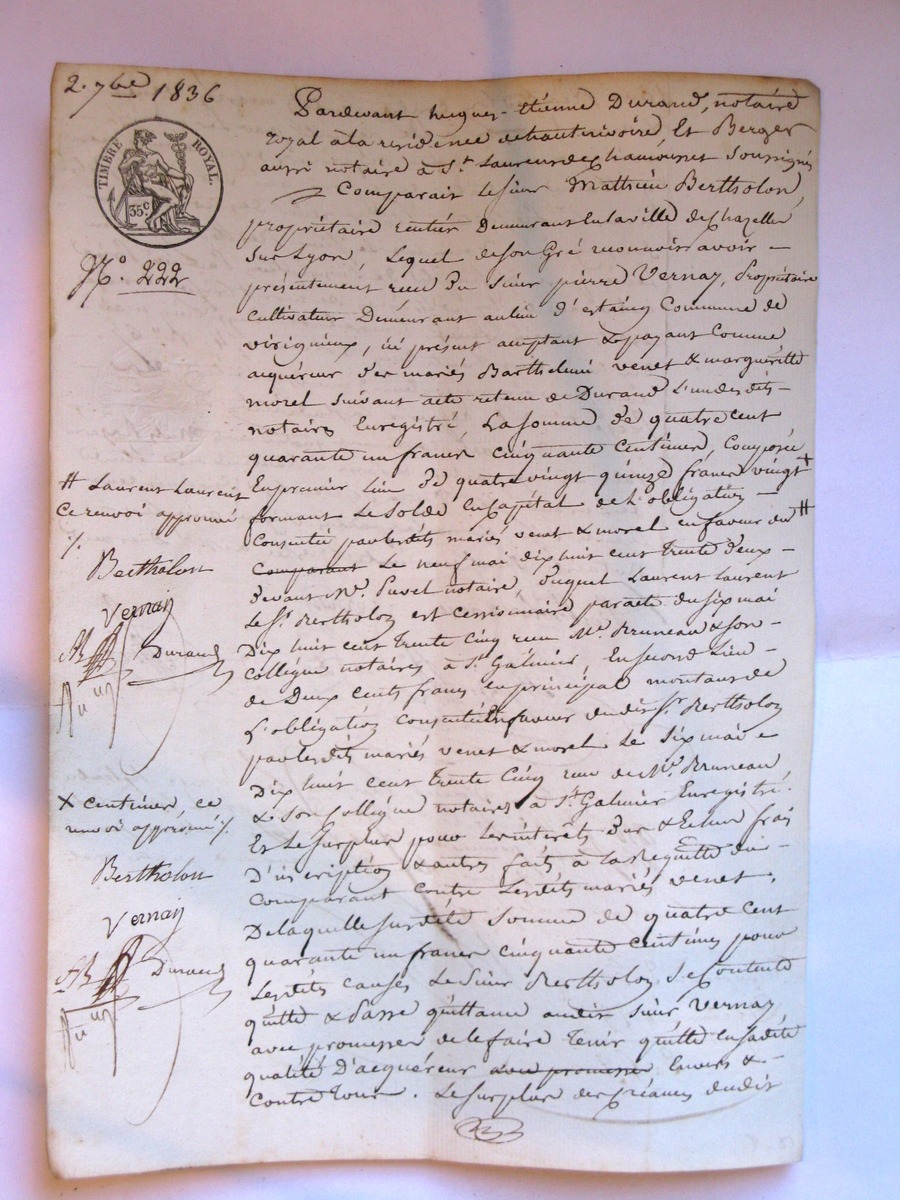 2. 7bre 1836
TIMBRE ROYAL.
35c.
N° 222
Pardevant hugues-étienne Durand, notaire
royal à la residence de hauterivoire, Et Berger
aussi notaire à St Laurent de Chamousset Soussignés
Comparait le sieur Mathieu Bertholon,
propriétaire rentier Demeurant en la ville de Chazelles
sur Lyon, Lequel de son Gré reconnoit avoir
présentement reçu Du sieur pierre Vernay, Propriétaire
cultivateur Demeurant au lieu d'estaing Commune de
virigneux, ici présent acceptant & payant Comme
acquéreur des mariés Barthelemi venet & margueritte
morel suivant acte retenu de Durand l'un des dits
notaires Enregistré, La somme de quatre cent
quarante un francs cinquante centimes, Composée
En premier lieu de quatre vingt quinze francs vingt +
formant Le Solde en Capital de L'obligation
Consentie par lesdits mariés venet & morel en faveur du #
comparant Le neuf mai dix huit cent trente deux
devant Me notaire, duquel Laurent Laurent
Le Sr Bertholon est cessionnaire par acte du six mai
Dix huit cent trente Cinq reçu Me Bruneau & son
collégue notaires à St Galmier, En second Lieu
de Deux cents francs en principal montant de
L'obligation consentie En faveur dudit Sr Bertholon
par lesdits mariés venet & morel Le six mai
Dix huit cent trente Cinq reçu de Me Bruneau
& son Collégue notaires à St Galmier Enregistré.
Et Le surplus pour Les interêts Dus & Echus frais
D'inscription & autres faits à la Requette du
comparant contre Lesdits mariés venet.
De laquelle susdite Somme de quatre cent
quarante un francs cinquante centimes pour
Lesdites causes Le sieur Bertholon se Contente
quitte & Passe quittance audit sieur Vernay
avec promesse de le faire tenir quitte en sadite
qualité D'acquéreur avec promesse Envers &
contre tous. Le surplus des Créances dudit
# Laurent Laurent
Ce renvoi approuvé
./.
Bertholon
Vernay
Durand
X centimes, ce
renvoi approuvé ./.
Bertholon
Vernay
Durand